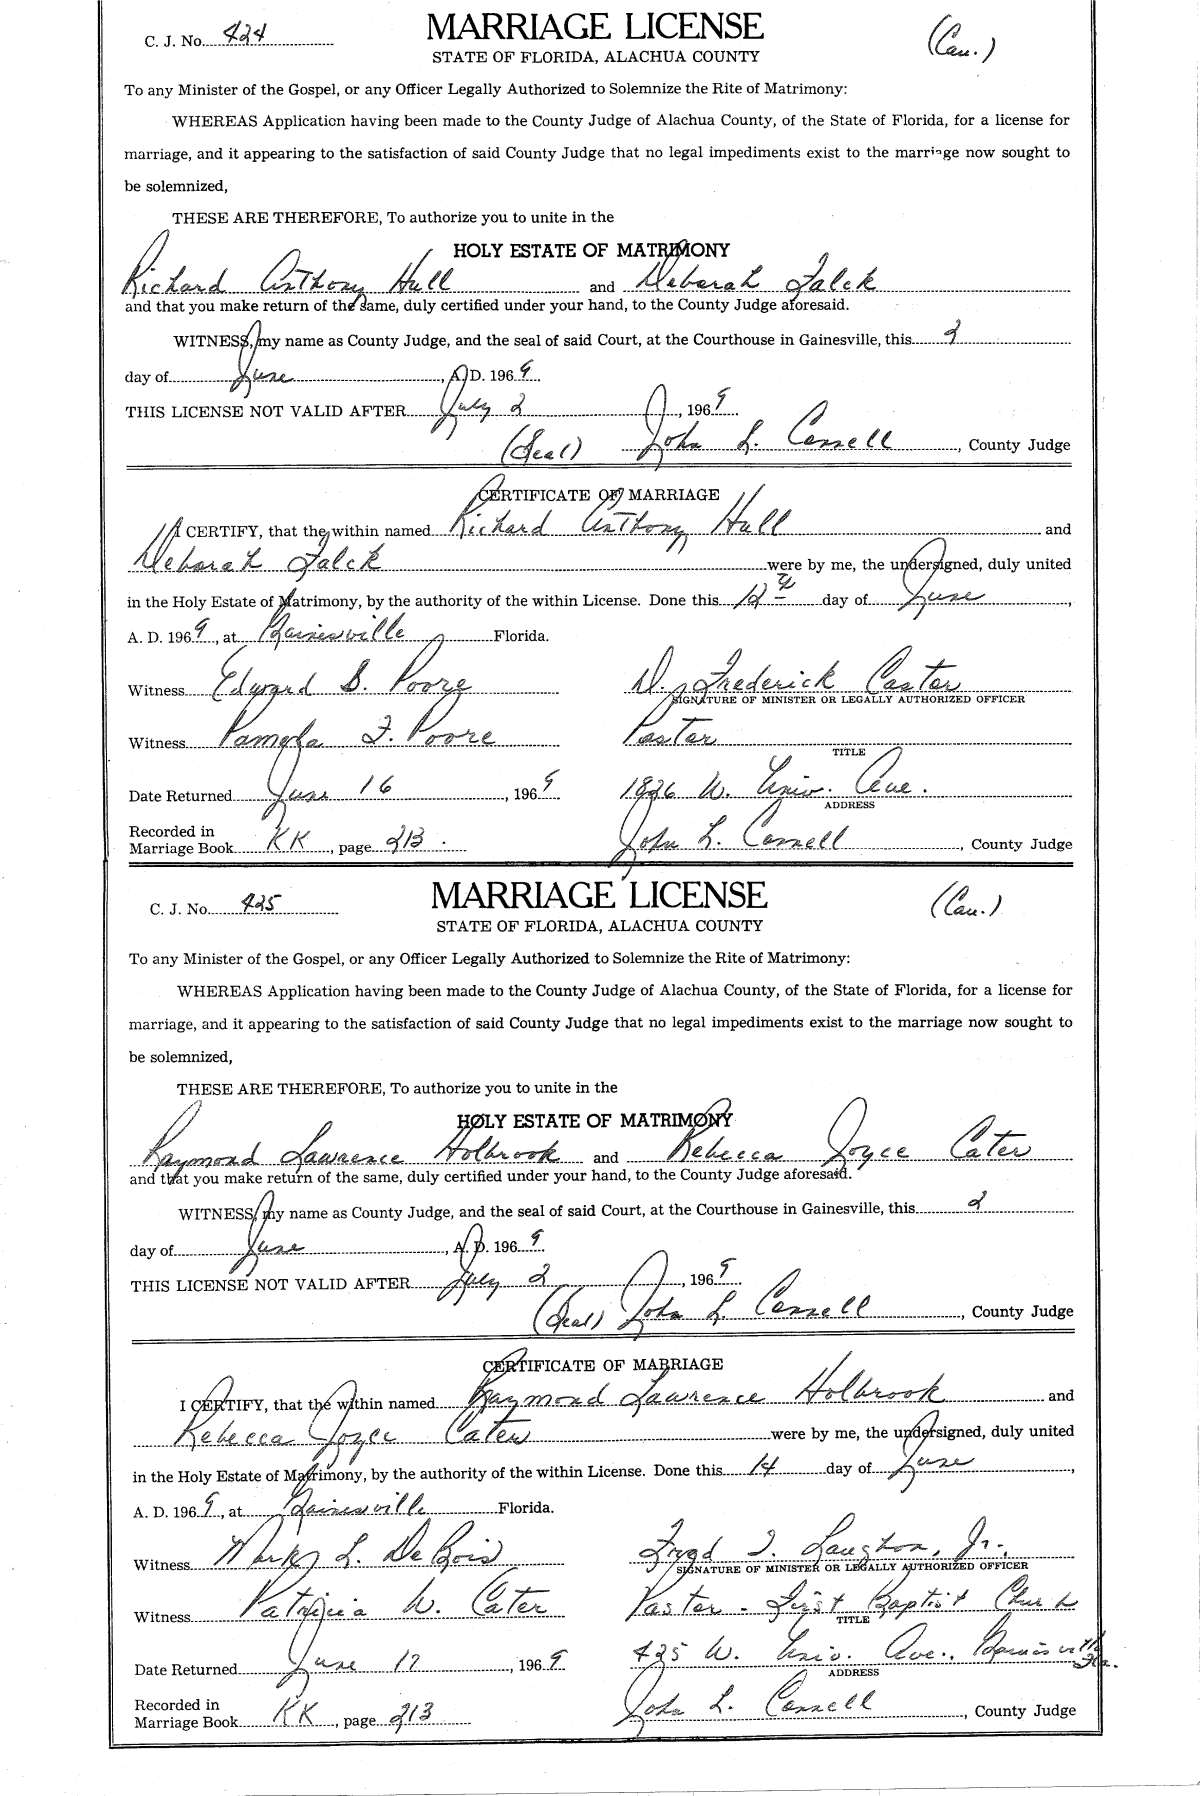 C. J. No. 424
MARRIAGE LICENSE
(Cau.)
STATE OF FLORIDA, ALACHUA COUNTY
To any Minister of the Gospel, or any Officer Legally Authorized to Solemnize the Rite of Matrimony:
WHEREAS Application having been made to the County Judge of Alachua County, of the State of Florida, for a license for
marriage, and it appearing to the satisfaction of said County Judge that no legal impediments exist to the marriage now sought to
be solemnized,
THESE ARE THEREFORE, To authorize you to unite in the
HOLY ESTATE OF MATRIMONY
Richard Anthony Hull and Deborah Falck
and that you make return of the same, duly certified under your hand, to the County Judge aforesaid.
WITNESS, my name as County Judge, and the seal of said Court, at the Courthouse in Gainesville, this 2
day of June, A. D. 1969
THIS LICENSE NOT VALID AFTER July 2, 1969
(Seal) John L. Connell, County Judge
CERTIFICATE OF MARRIAGE
I CERTIFY, that the within named Richard Anthony Hull and
Deborah Falck were by me, the undersigned, duly united
in the Holy Estate of Matrimony, by the authority of the within License. Done this 12 day of June,
A. D. 1969, at Gainesville Florida.
Witness Edward S. Poore D. Frederick Caster
SIGNATURE OF MINISTER OR LEGALLY AUTHORIZED OFFICER
Witness Pamela F. Poore Pastor
TITLE
Date Returned June 16, 1969 1826 W. Univ. Ave.
ADDRESS
Recorded in
Marriage Book KK, page 213. John L. Connell, County Judge
C. J. No. 425
MARRIAGE LICENSE
(Cau.)
STATE OF FLORIDA, ALACHUA COUNTY
To any Minister of the Gospel, or any Officer Legally Authorized to Solemnize the Rite of Matrimony:
WHEREAS Application having been made to the County Judge of Alachua County, of the State of Florida, for a license for
marriage, and it appearing to the satisfaction of said County Judge that no legal impediments exist to the marriage now sought to
be solemnized,
THESE ARE THEREFORE, To authorize you to unite in the
HOLY ESTATE OF MATRIMONY
Raymond Lawrence Holbrook and Rebecca Joyce Cater
and that you make return of the same, duly certified under your hand, to the County Judge aforesaid.
WITNESS, my name as County Judge, and the seal of said Court, at the Courthouse in Gainesville, this 2
day of June, A. D. 1969
THIS LICENSE NOT VALID AFTER July 2, 1969
(Seal) John L. Connell, County Judge
CERTIFICATE OF MARRIAGE
I CERTIFY, that the within named Raymond Lawrence Holbrook and
Rebecca Joyce Cater were by me, the undersigned, duly united
in the Holy Estate of Matrimony, by the authority of the within License. Done this 14 day of June,
A. D. 1969, at Gainesville Florida.
Witness Marks L. DeBois Fred T. Laughon, Jr.,
SIGNATURE OF MINISTER OR LEGALLY AUTHORIZED OFFICER
Witness Patricia W. Cater Pastor - First Baptist Church
TITLE
Date Returned June 17, 1969 425 W. Univ. Ave., Gainesville Fla.
ADDRESS
Recorded in
Marriage Book KK, page 213 John L. Connell, County Judge